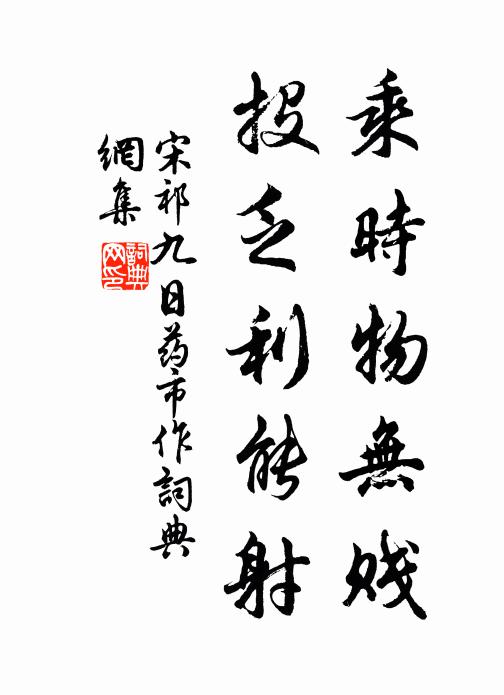 乘時物無賤
投乏利能射
宋祁九日药市作詞典
網集
詞典
网印